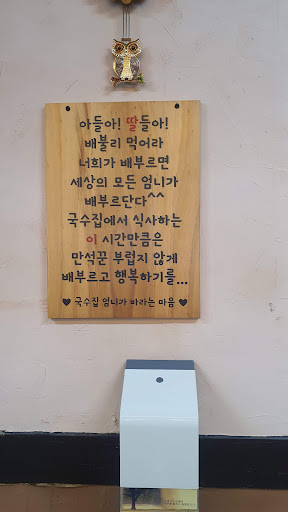 아들아! 딸들아!
배불리 먹어라
너희가 배부르면
세상의 모든 엄니가
배부르단다^^
국수집에서 식사하는
이 시간만큼은
만석꾼 부럽지 않게
배부르고 행복하기를...
♥ 국수집 엄니가 바라는 마음 ♥